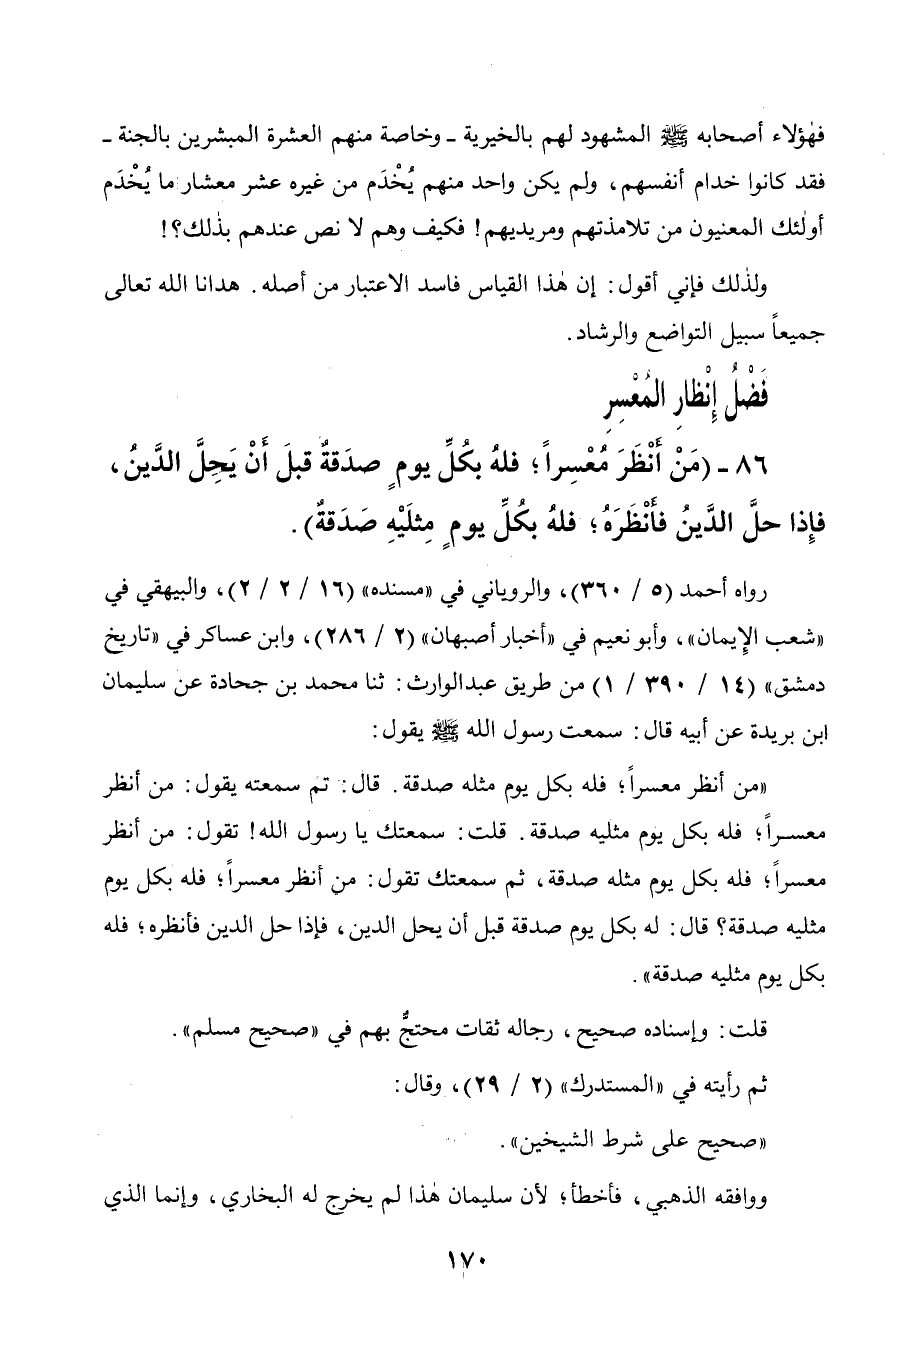 فهٰؤلاء أصحابه ﷺ المشهود لهم بالخيرية ـ وخاصة منهم العشرة المبشرين بالجنة ـ
فقد كانوا خدام أنفسهم، ولم يكن واحد منهم يُخْدَم من غيره عشر معشار ما يُخْدَم
أولٰئك المعنيون من تلامذتهم ومريديهم! فكيف وهم لا نص عندهم بذٰلك؟!
ولذٰلك فإني أقول: إن هٰذا القياس فاسد الاعتبار من أصله. هدانا الله تعالى
جميعاً سبيل التواضع والرشاد.
فَضْلُ إِنْظارِ المُعْسِرِ
٨٦ ـ (مَنْ أَنْظَرَ مُعْسِراً؛ فلهُ بكُلِّ يومٍ صدَقةٌ قبلَ أَنْ يَحِلَّ الدَّينُ،
فإِذا حلَّ الدَّينُ فأَنْظَرَهُ؛ فلهُ بكُلِّ يومٍ مِثلَيْهِ صَدَقةٌ).
رواه أحمد (٥ / ٣٦٠)، والروياني في «مسنده» (١٦ / ٢ / ٢)، والبيهقي في
«شعب الإيمان»، وأبو نعيم في «أخبار أصبهان» (٢ / ٢٨٦)، وابن عساكر في «تاريخ
دمشق» (١٤ / ٣٩٠ / ١) من طريق عبدالوارث: ثنا محمد بن جحادة عن سليمان
ابن بريدة عن أبيه قال: سمعت رسول الله ﷺ يقول:
«من أنظر معسراً؛ فله بكل يوم مثله صدقة. قال: ثم سمعته يقول: من أنظر
معسراً؛ فله بكل يوم مثليه صدقة. قلت: سمعتك يا رسول الله! تقول: من أنظر
معسراً؛ فله بكل يوم مثله صدقة، ثم سمعتك تقول: من أنظر معسراً؛ فله بكل يوم
مثليه صدقة؟ قال: له بكل يوم صدقة قبل أن يحل الدين، فإذا حل الدين فأنظره؛ فله
بكل يوم مثليه صدقة».
قلت: وإسناده صحيح، رجاله ثقات محتجٌّ بهم في «صحيح مسلم».
ثم رأيته في «المستدرك» (٢ / ٢٩)، وقال:
«صحيح على شرط الشيخين».
ووافقه الذهبي، فأخطأ؛ لأن سليمان هٰذا لم يخرج له البخاري، وإنما الذي
١٧٠